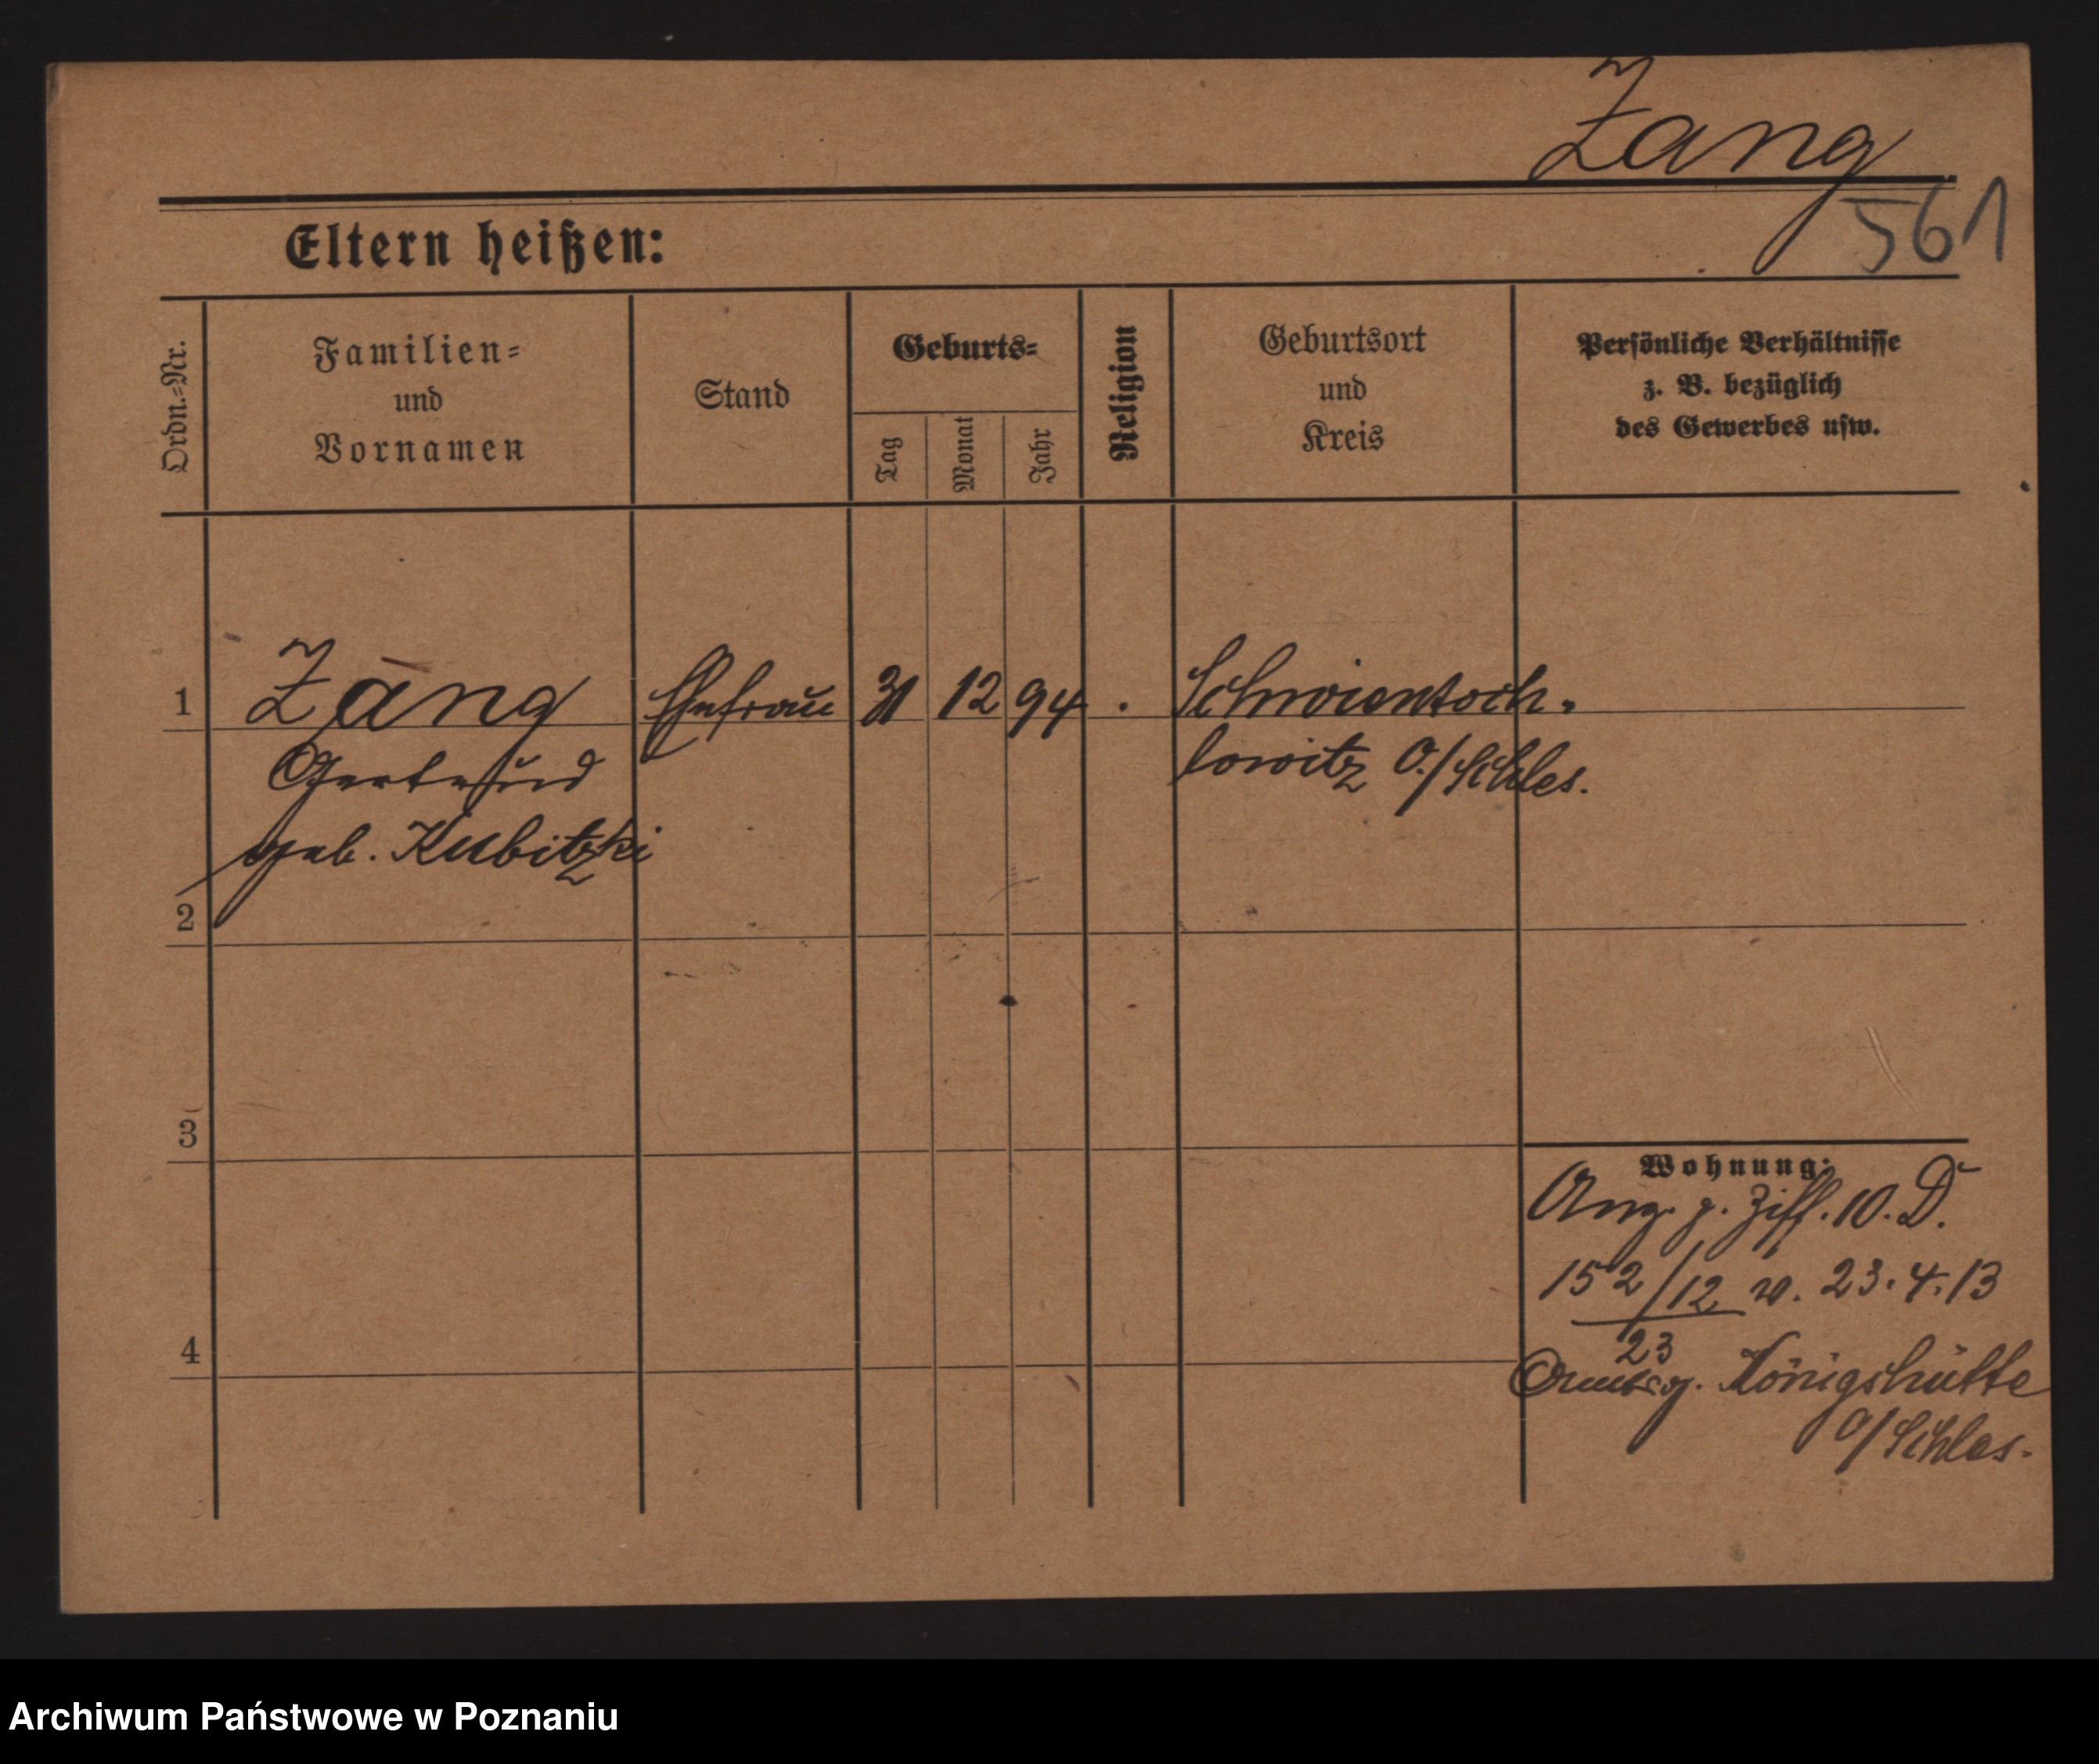 Zang
561
Eltern heißen:
Ordn.=Nr.
Familien=
und
Vornamen
Stand
Geburts=
Tag
Monat
Jahr
Religion
Geburtsort
und
Kreis
Persönliche Verhältnisse
z. B. bezüglich
des Gewerbes usw.
1
Zang
Ehefrau
31
12
94
Schwientoch=
Gertrud
lowitz O./Schles.
geb. Kubitzki
2
3
4
Wohnung:
Anz. z. Ziff. 10. D.
152/12 v. 23.4.13
23
Amtsg. Königshütte
O/Schles.
Archiwum Państwowe w Poznaniu